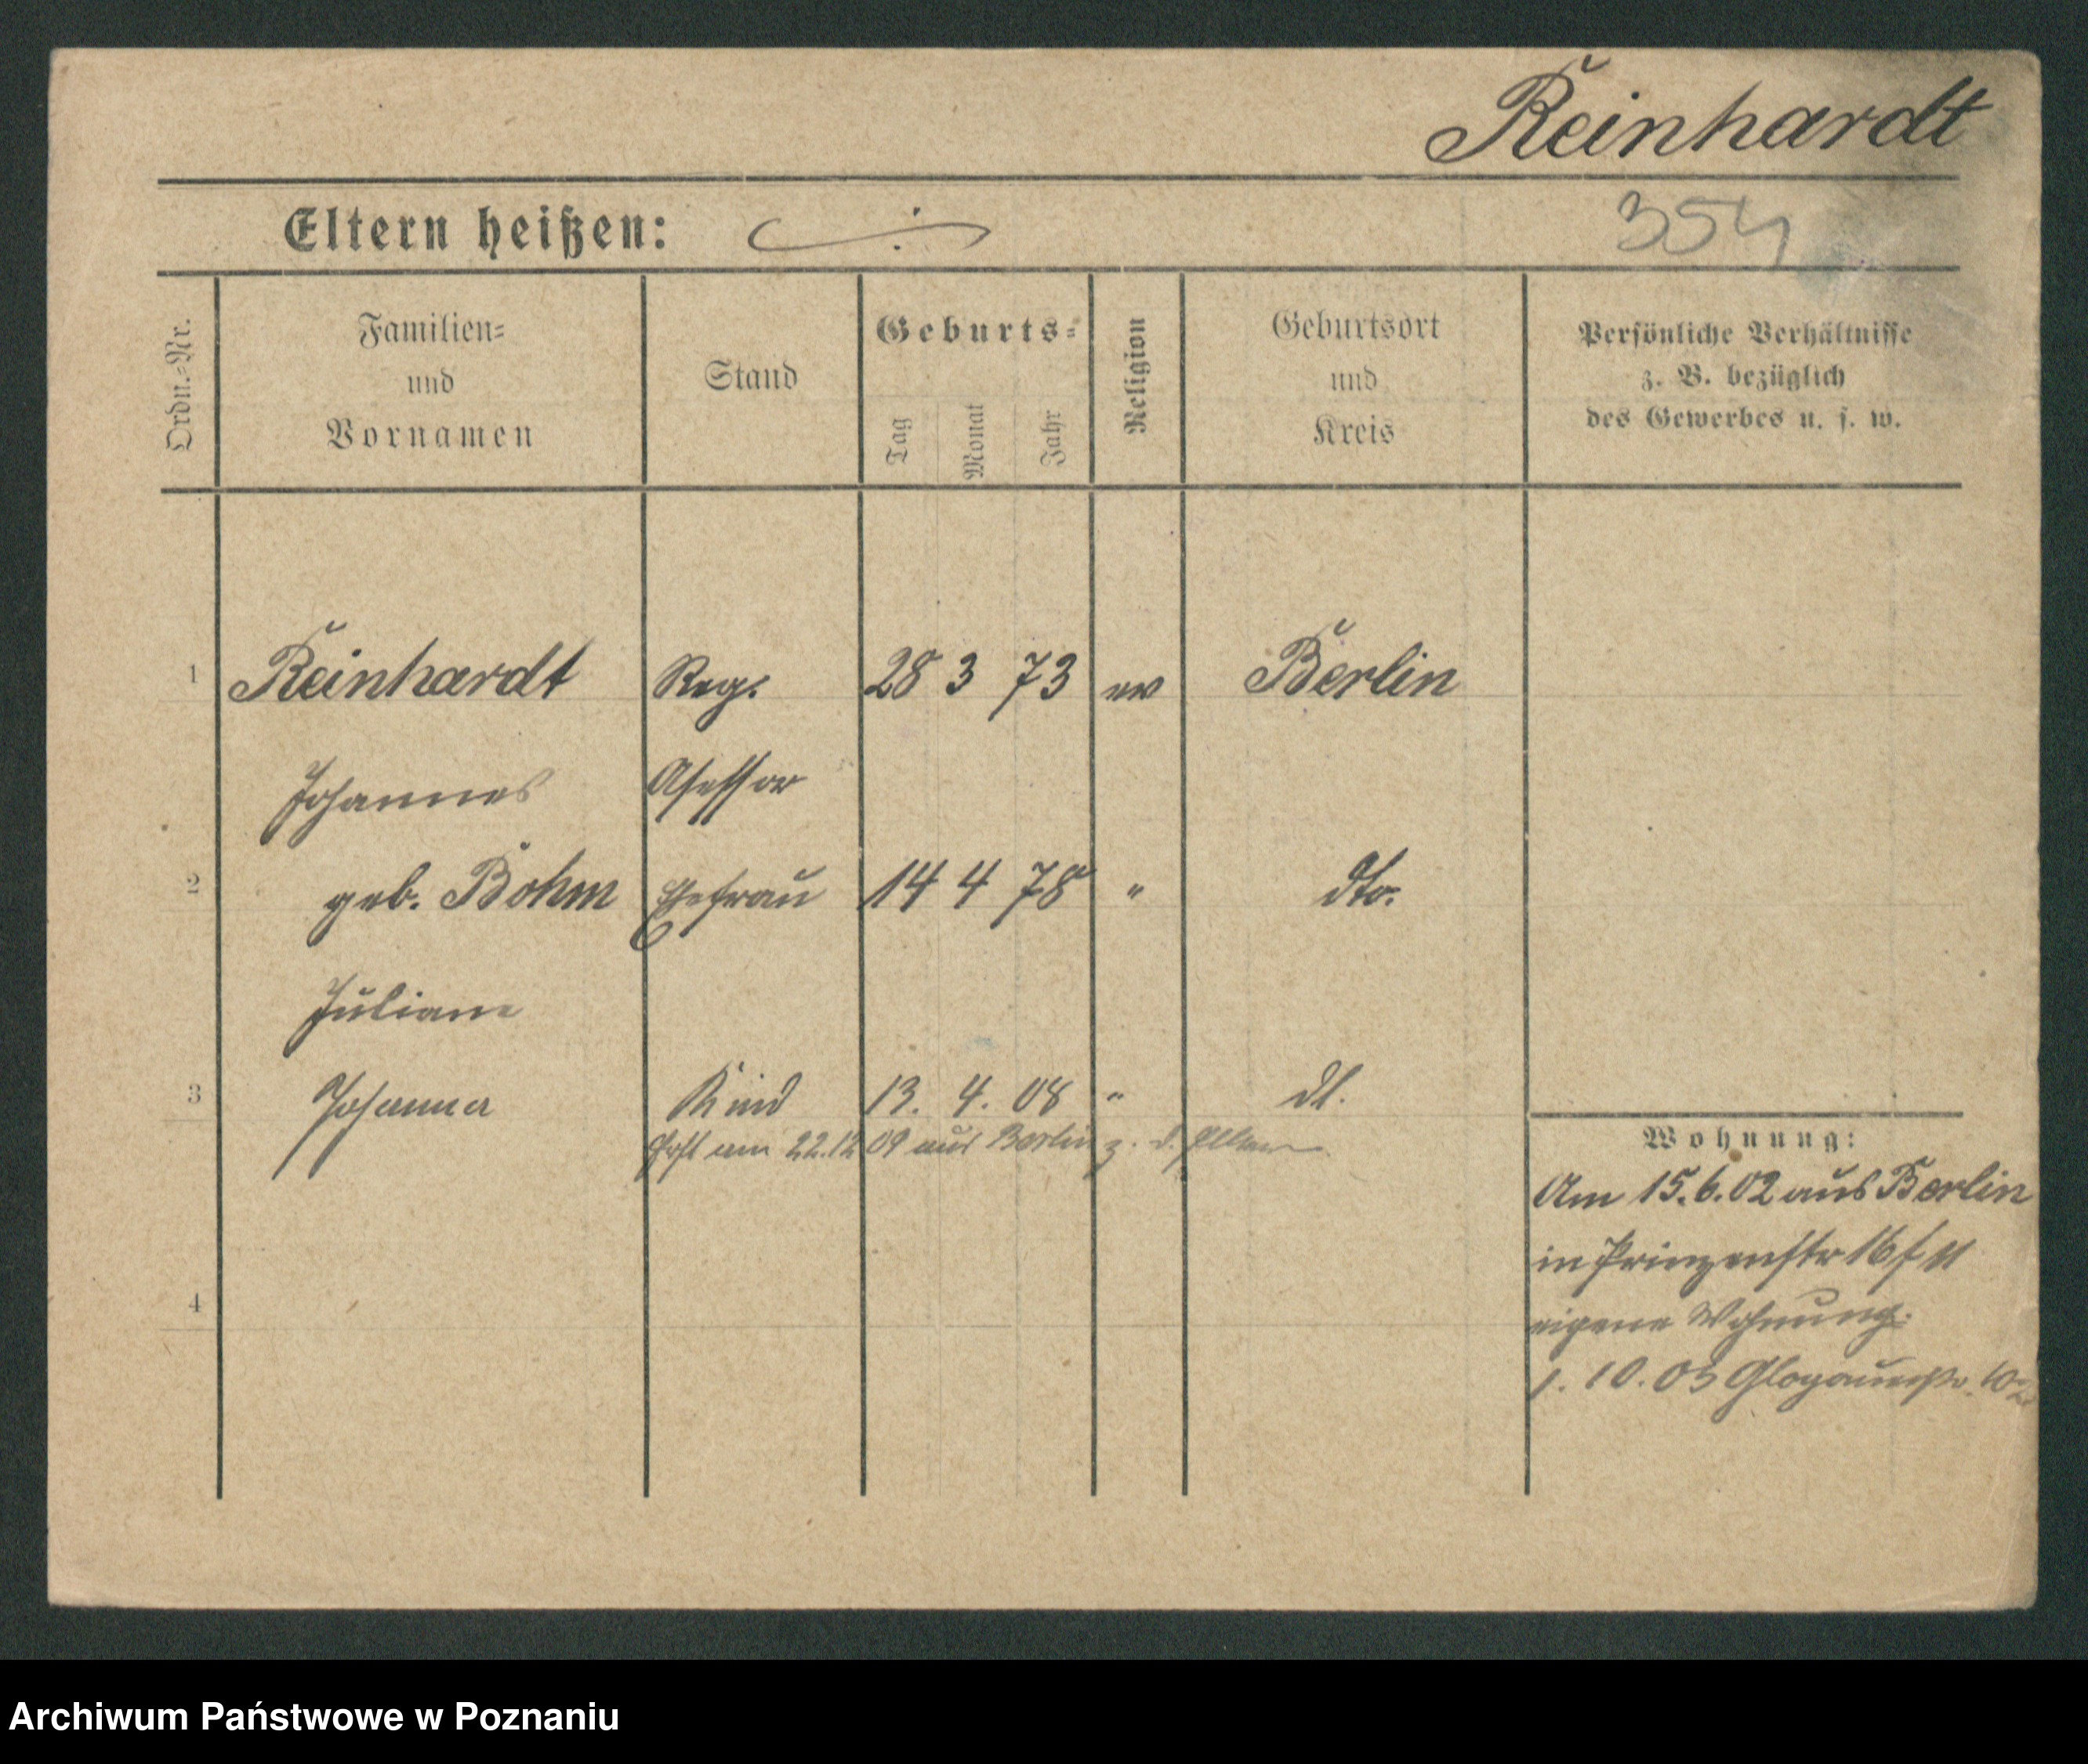 Reinhardt
Eltern heißen:
354
Ordn.-Nr.
Familien-
und
Vornamen
Stand
Geburts-
Tag
Monat
Jahr
Religion
Geburtsort
und
Kreis
Persönliche Verhältnisse
z. B. bezüglich
des Gewerbes u. s. w.
1 Reinhardt Reg. 28 3 73 ev Berlin
Johannes Assessor
2 geb. Bohm Ehefrau 14 4 78 " dto.
Juliane
3 Johanna Kind 13. 4. 08 " dt.
am 22.12 09 aus Berlin z. d. Eltern
Wohnung:
Am 15.6.02 aus Berlin
in Prinzenstr 16 f II
eigene Wohnung.
4
1. 10. 03 Glogauerstr.
Archiwum Państwowe w Poznaniu